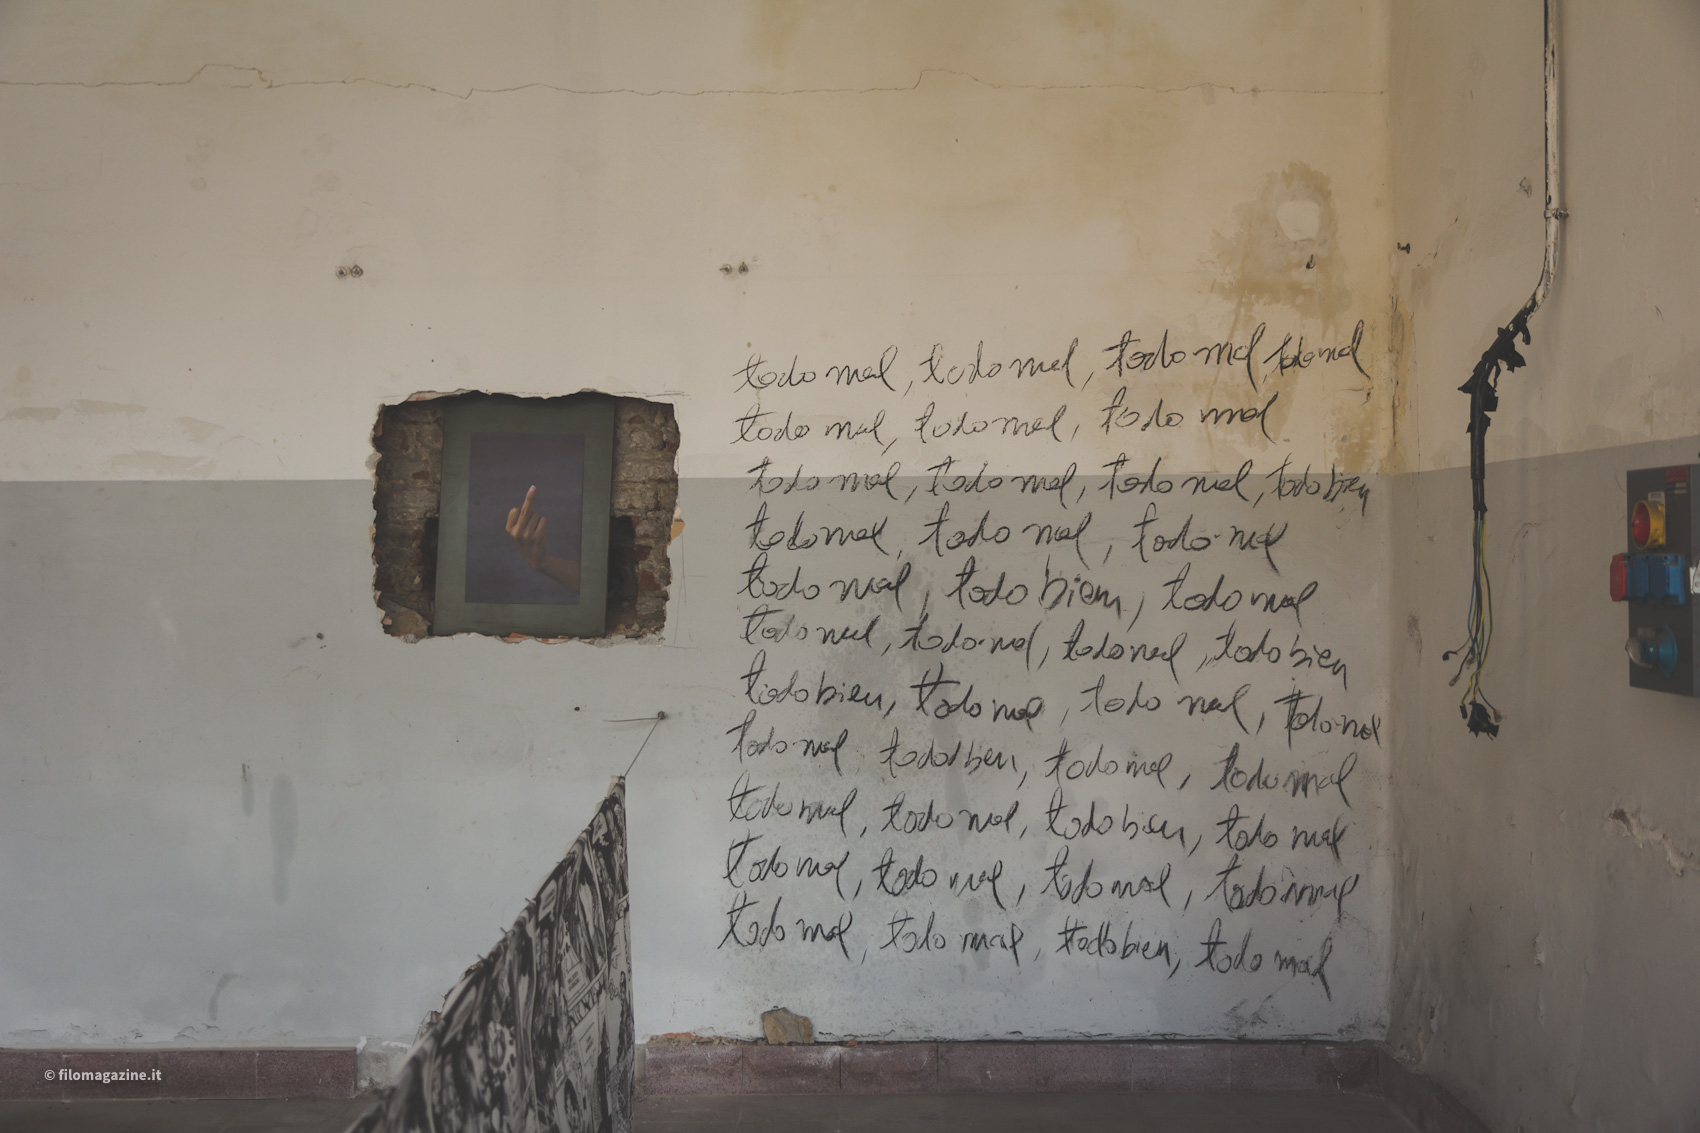 todo mal, todo mal, todo mal, todo mal
todo mal, todo mal, todo mal
todo mal, todo mal, todo mal, todo bien
todo mal, todo mal, todo mal
todo mal, todo bien, todo mal
todo mal, todo mal, todo mal, todo bien
todo bien, todo mal, todo mal, todo mal
todo mal todo bien, todo mal, todo mal
todo mal, todo mal, todo bien, todo mal
todo mal, todo mal, todo mal, todo mal
todo mal, todo mal, todo bien, todo mal
© filomagazine.it